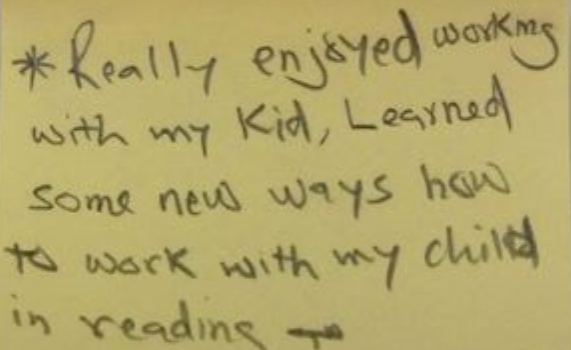 * Really enjoyed working
with my Kid, Learned
some new ways how
to work with my child
in reading -